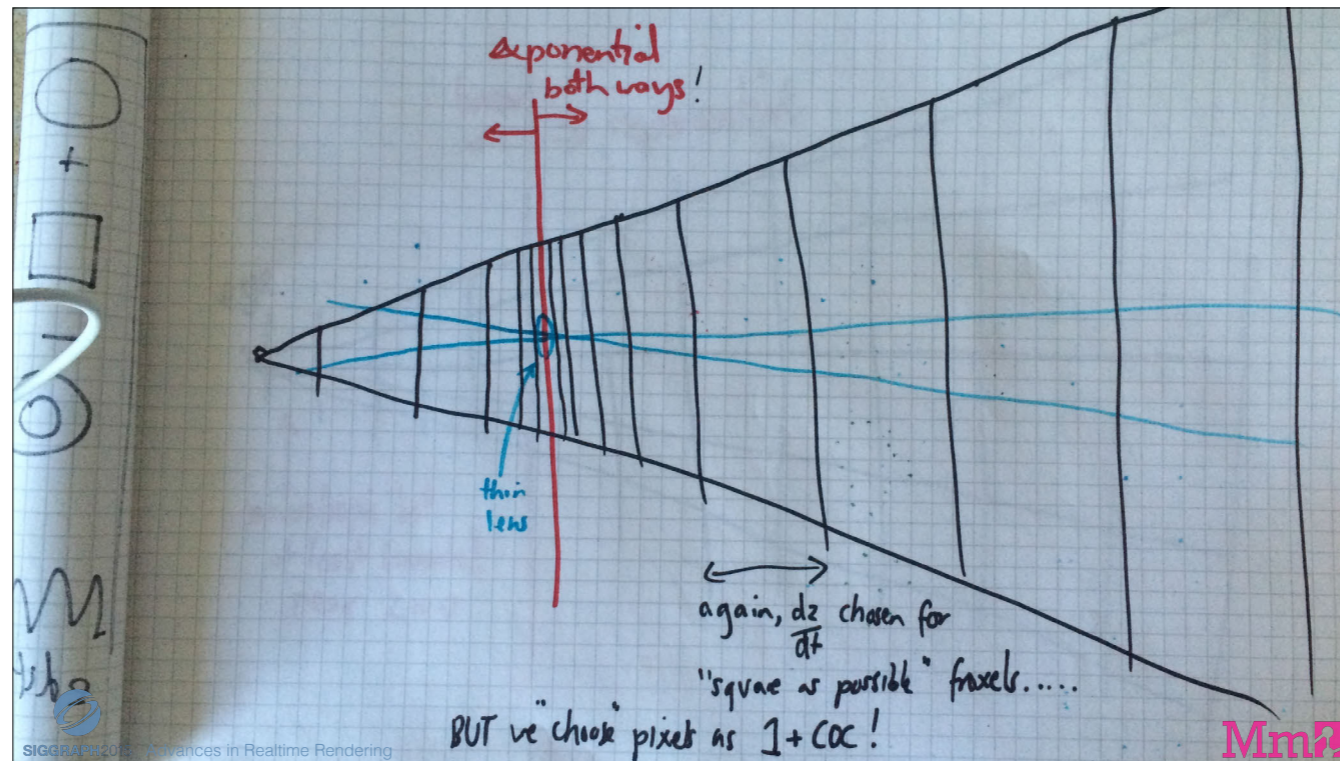 exponential
both ways!
thin
lens
again, dz/dt chosen for
"square as possible" froxels.....
BUT we "choose" pixels as 1 + COC!
Advances in Realtime Rendering